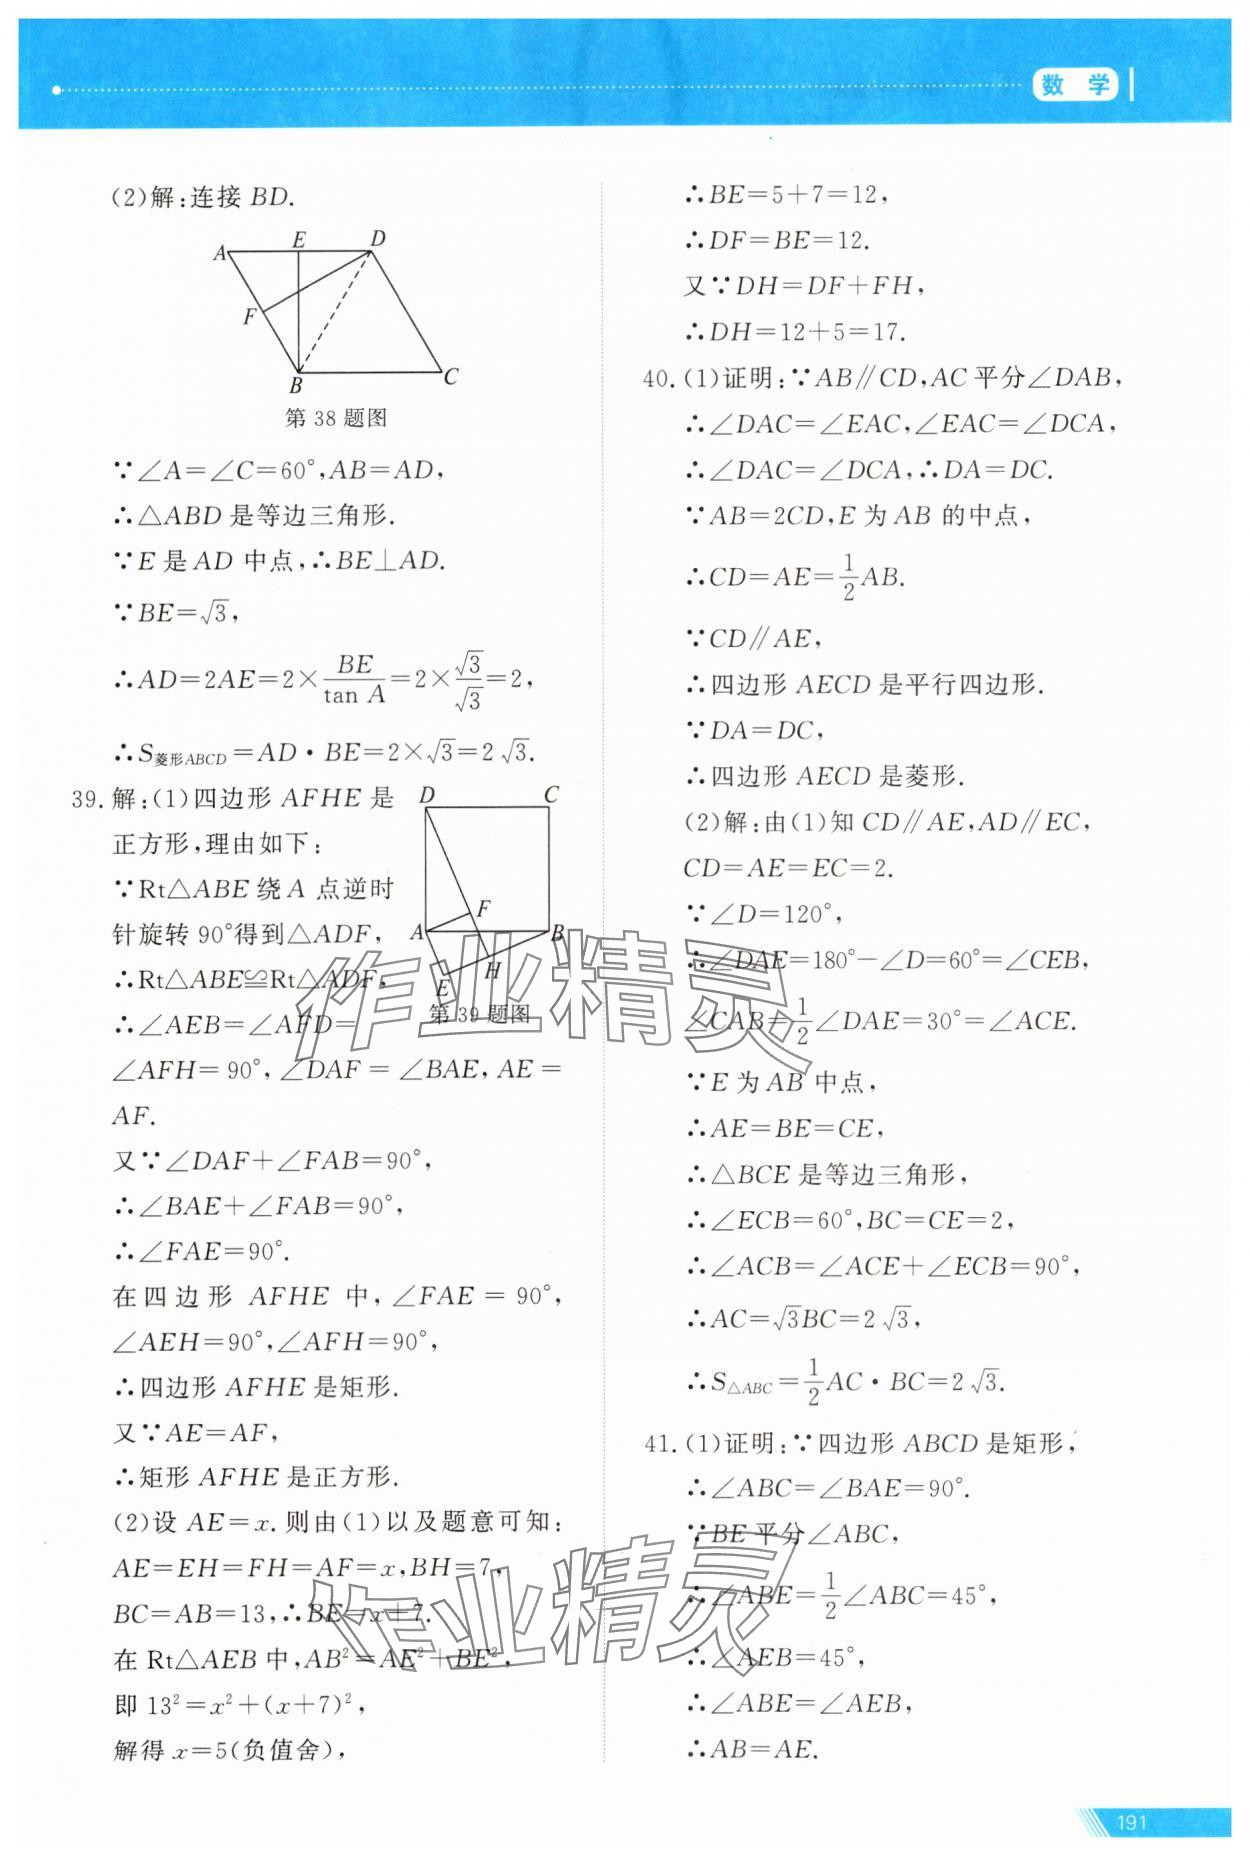 数 学
(2)解:连接 BD.
A E D
F
B C
第 38 题图
∵∠A=∠C=60°,AB=AD,
∴△ABD 是等边三角形.
∵E 是 AD 中点,∴BE⊥AD.
∵BE=√3,
∴AD=2AE=2×BE/tan A=2×√3/√3=2,
∴S菱形ABCD=AD·BE=2×√3=2√3.
39. 解:(1)四边形 AFHE 是
正方形,理由如下:
∵Rt△ABE 绕 A 点逆时
针旋转 90°得到△ADF,
∴Rt△ABE≌Rt△ADF,
∴∠AEB=∠AFD=
D C
F
A B
E H
第 39 题图
∠AFH=90°,∠DAF=∠BAE,AE=
AF.
又∵∠DAF+∠FAB=90°,
∴∠BAE+∠FAB=90°,
∴∠FAE=90°.
在四边形 AFHE 中,∠FAE=90°,
∠AEH=90°,∠AFH=90°,
∴四边形 AFHE 是矩形.
又∵AE=AF,
∴矩形 AFHE 是正方形.
(2)设 AE=x.则由(1)以及题意可知:
AE=EH=FH=AF=x,BH=7,
BC=AB=13,∴BE=x+7.
在 Rt△AEB 中,AB²=AE²+BE²,
即 13²=x²+(x+7)²,
解得 x=5(负值舍),
∴BE=5+7=12,
∴DF=BE=12.
又∵DH=DF+FH,
∴DH=12+5=17.
40. (1)证明:∵AB∥CD,AC 平分∠DAB,
∴∠DAC=∠EAC,∠EAC=∠DCA,
∴∠DAC=∠DCA,∴DA=DC.
∵AB=2CD,E 为 AB 的中点,
∴CD=AE=1/2AB.
∵CD∥AE,
∴四边形 AECD 是平行四边形.
∵DA=DC,
∴四边形 AECD 是菱形.
(2)解:由(1)知 CD∥AE,AD∥EC,
CD=AE=EC=2.
∵∠D=120°,
∴∠DAE=180°-∠D=60°=∠CEB,
∠CAB=1/2∠DAE=30°=∠ACE.
∵E 为 AB 中点,
∴AE=BE=CE,
∴△BCE 是等边三角形,
∴∠ECB=60°,BC=CE=2,
∴∠ACB=∠ACE+∠ECB=90°,
∴AC=√3BC=2√3,
∴S△ABC=1/2AC·BC=2√3.
41. (1)证明:∵四边形 ABCD 是矩形,
∴∠ABC=∠BAE=90°.
∵BE 平分∠ABC,
∴∠ABE=1/2∠ABC=45°,
∴∠AEB=45°,
∴∠ABE=∠AEB,
∴AB=AE.
作业精灵
作业精灵
191